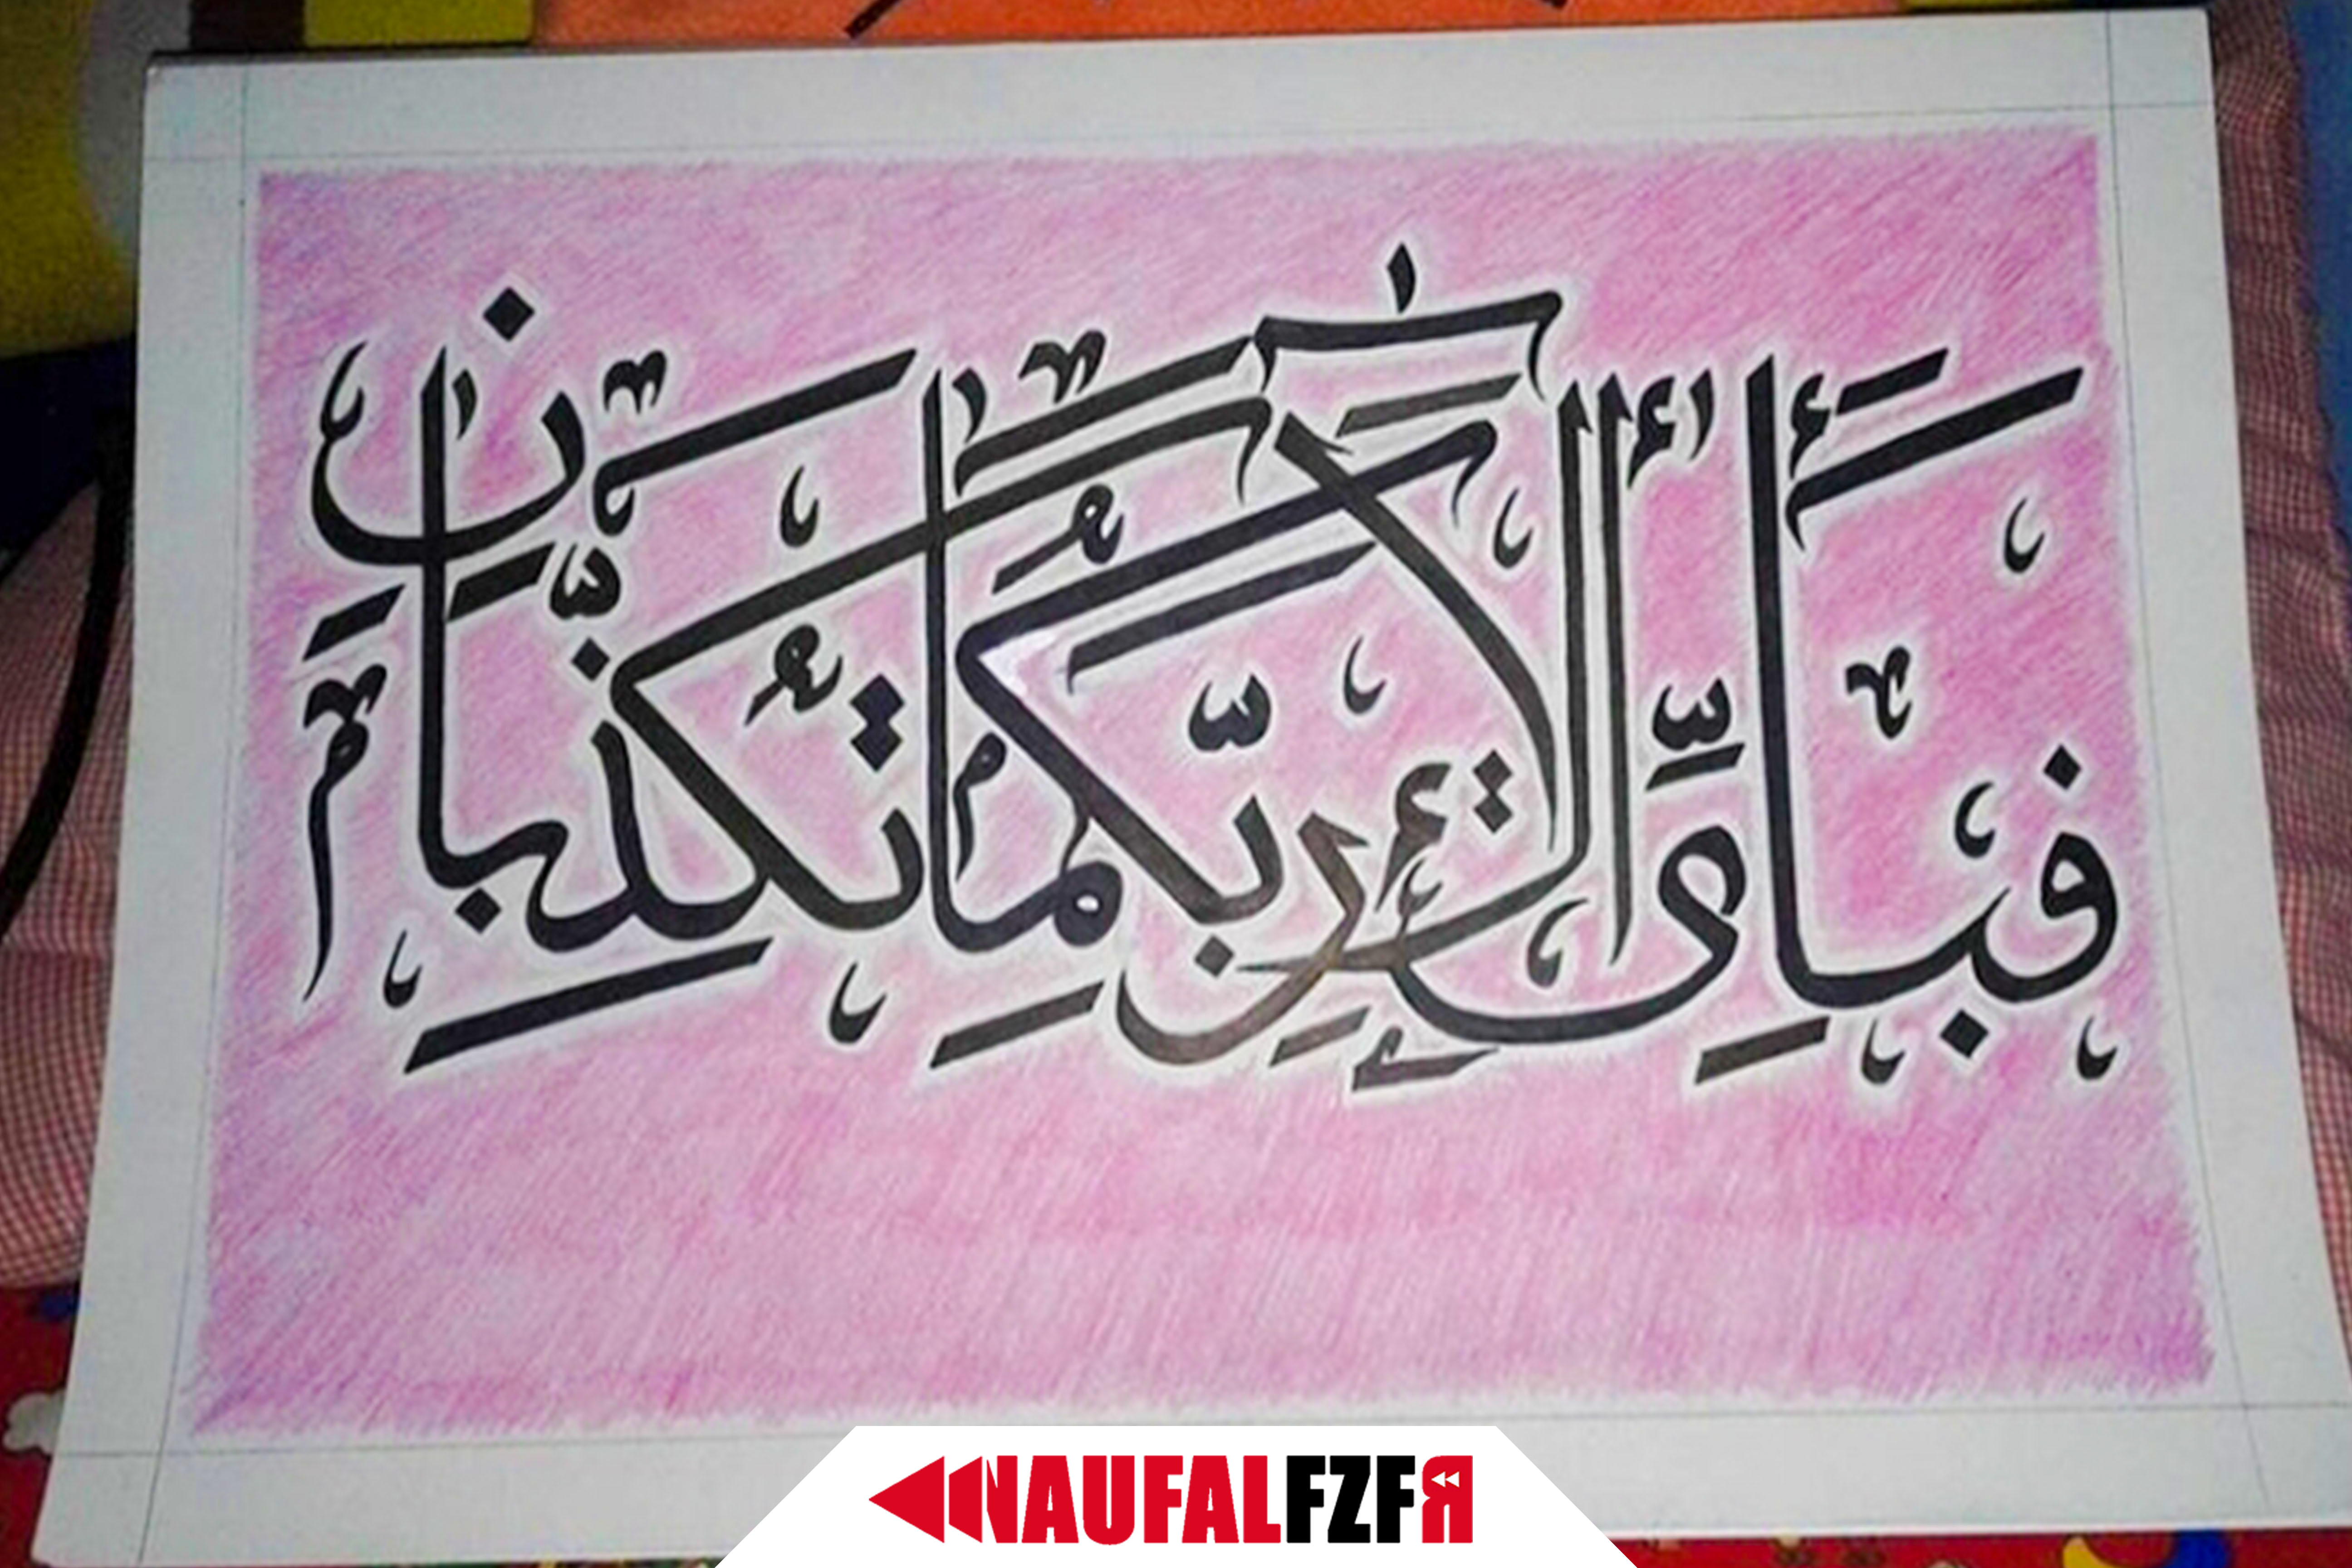 فَبِأَيِّ آلَاءِ رَبِّكُمَا تُكَذِّبَانِ
NAUFALFZFR